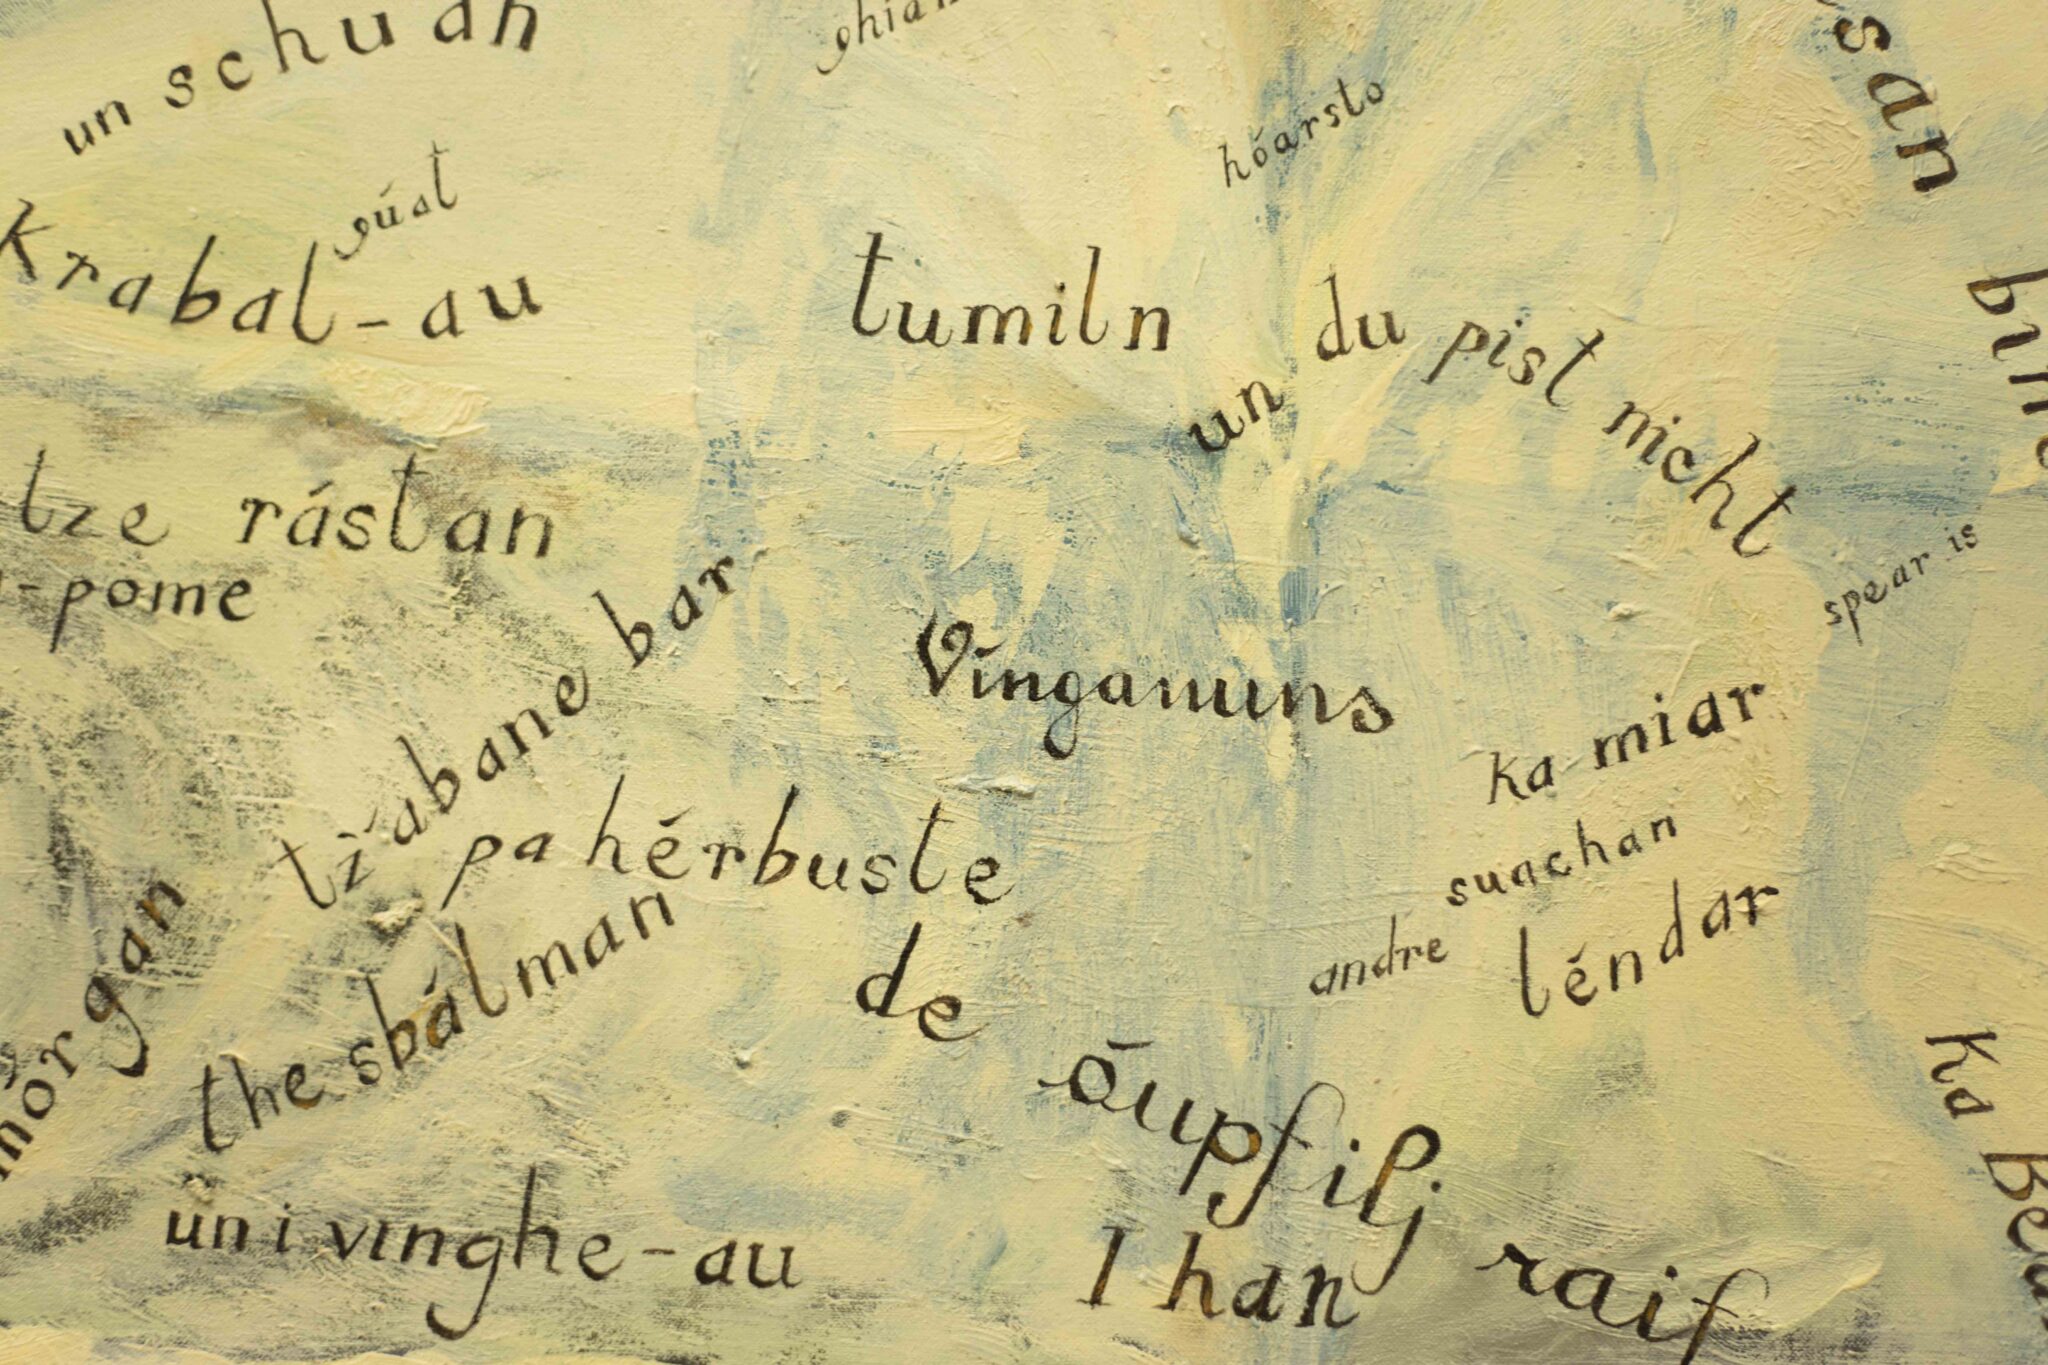 un schuan
hóarsto
gúat
Krabal-au
tumiln
un du pist nicht
tze rástan
-pome
spear is
tžabane bar
Vinganuns
ka miar
pa hérbuste
suachan
andre léndar
mórgan
the sbálman
de áupfilj raif
Ka
uni vinghe-au
I han